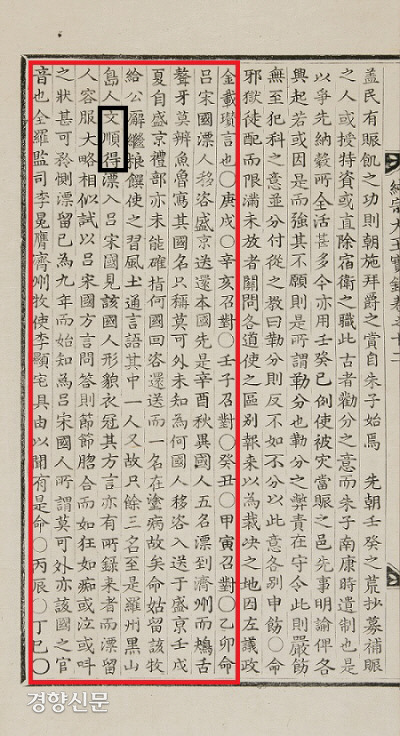 純宗大王實錄卷之十二
蓋民有賑飢之功則朝施拜爵之賞自朱子始焉 先朝壬癸之荒抄募補賑
之人或授特資或直除宿衛之職此古者勸分之意而朱子南康時遺制也是
以爭先納穀所全活甚多今亦用壬癸已例使被灾當賑之邑先事明諭俾各
興起若或因是而強其不願則是所謂勒分也勒分之弊責在守令此則嚴飭
無至犯科之意並分付從之敎曰勒分則反不如不分以此意各別申飭○命
邪獄徒配而限滿未放者關問各道使之區別報來以爲裁決之地因左議政
金載瓚言也○庚戌○辛亥召對○壬子召對○癸丑○甲寅召對○乙卯命
呂宋國漂人移咨盛京送還本國先是辛酉秋異國人五名漂到濟州而鴃舌
聱牙莫辨魚魯寫其國名只稱莫可外未知爲何國人移咨入送于盛京壬戌
夏自盛京禮部亦未能確指何國回咨還送而一名在塗病故矣命姑留該牧
給公廨繼粮饌使之習風土通言語其中一人又故只餘三名至是羅州黑山
島人文順得漂入呂宋國見該國人形貌衣冠其方言亦有所錄來者而漂留
人容服大略相似試以呂宋國方言問答則節節脗合而如狂如痴或泣或呌
之狀甚可矜惻漂留已爲九年而始知爲呂宋國人所謂莫可外亦該國之官
音也全羅監司李冕膺濟州牧使李顯宅具由以聞有是命○丙辰○丁巳○
경향신문